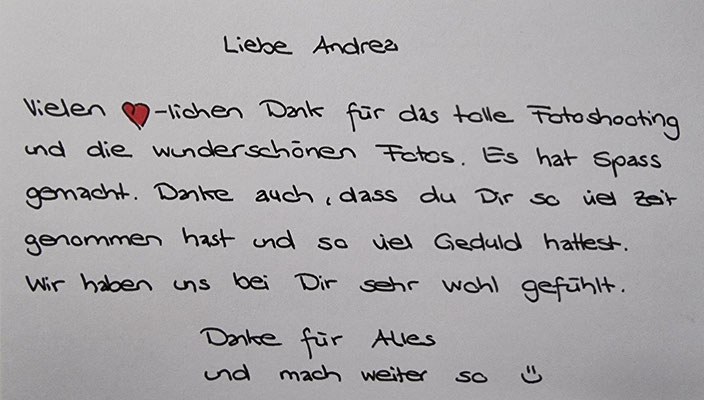 Liebe Andrea
Vielen ❤-lichen Dank für das tolle Fotoshooting
und die wunderschönen Fotos. Es hat Spass
gemacht. Danke auch, dass du Dir so viel Zeit
genommen hast und so viel Geduld hattest.
Wir haben uns bei Dir sehr wohl gefühlt.
Danke für Alles
und mach weiter so ☺